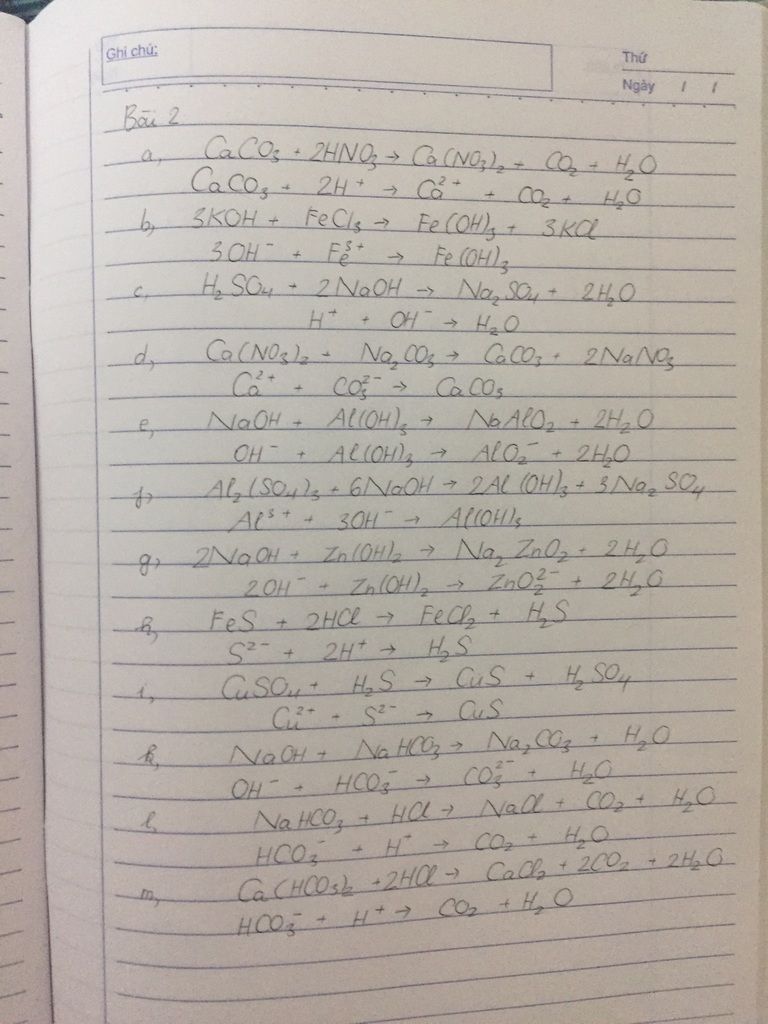 Ghi chú:
Thứ
Ngày / /
Bài 2
a, CaCO₃ + 2HNO₃ → Ca(NO₃)₂ + CO₂ + H₂O
CaCO₃ + 2H⁺ → Ca²⁺ + CO₂ + H₂O
b, 3KOH + FeCl₃ → Fe(OH)₃ + 3KCl
3OH⁻ + Fe³⁺ → Fe(OH)₃
c, H₂SO₄ + 2NaOH → Na₂SO₄ + 2H₂O
H⁺ + OH⁻ → H₂O
d, Ca(NO₃)₂ + Na₂CO₃ → CaCO₃ + 2NaNO₃
Ca²⁺ + CO₃²⁻ → CaCO₃
e, NaOH + Al(OH)₃ → NaAlO₂ + 2H₂O
OH⁻ + Al(OH)₃ → AlO₂⁻ + 2H₂O
f, Al₂(SO₄)₃ + 6NaOH → 2Al(OH)₃ + 3Na₂SO₄
Al³⁺ + 3OH⁻ → Al(OH)₃
g, 2NaOH + Zn(OH)₂ → Na₂ZnO₂ + 2H₂O
2OH⁻ + Zn(OH)₂ → ZnO₂²⁻ + 2H₂O
h, FeS + 2HCl → FeCl₂ + H₂S
S²⁻ + 2H⁺ → H₂S
i, CuSO₄ + H₂S → CuS + H₂SO₄
Cu²⁺ + S²⁻ → CuS
k, NaOH + NaHCO₃ → Na₂CO₃ + H₂O
OH⁻ + HCO₃⁻ → CO₃²⁻ + H₂O
l, NaHCO₃ + HCl → NaCl + CO₂ + H₂O
HCO₃⁻ + H⁺ → CO₂ + H₂O
m, Ca(HCO₃)₂ + 2HCl → CaCl₂ + 2CO₂ + 2H₂O
HCO₃⁻ + H⁺ → CO₂ + H₂O